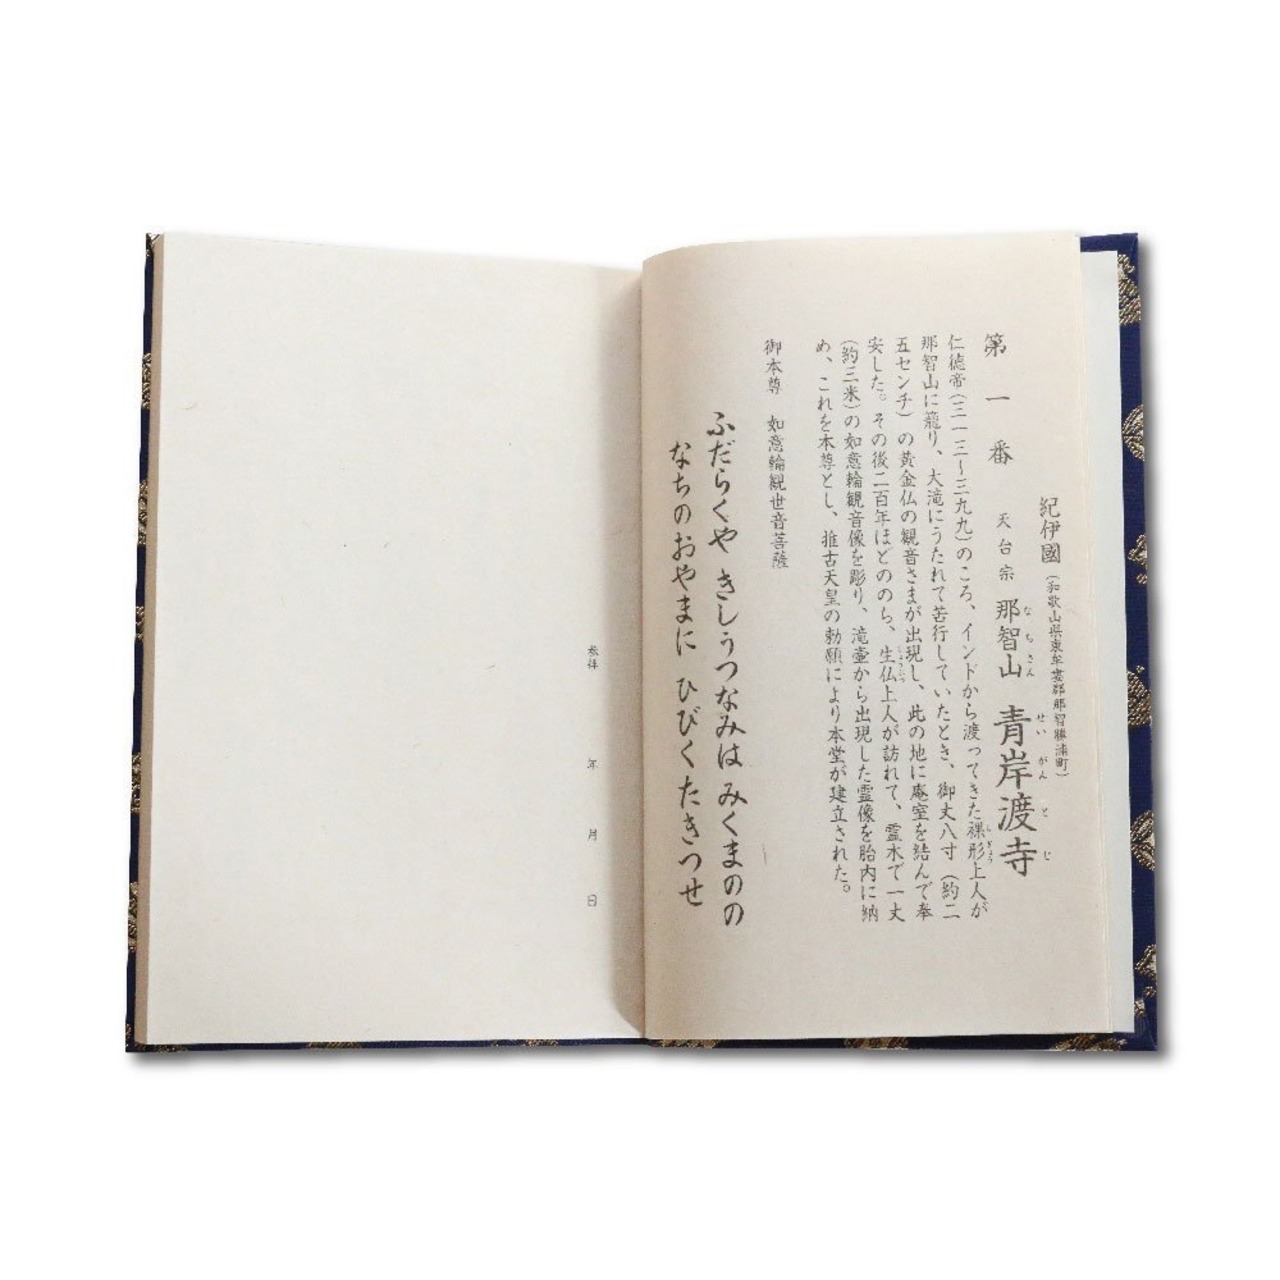 紀伊國(和歌山県東牟婁郡那智勝浦町)
第一番 天台宗 那智山 青岸渡寺
なちさん せいがんとじ
仁徳帝(三一三~三九九)のころ、インドから渡ってきた裸形上人が
那智山に籠り、大滝にうたれて苦行していたとき、御丈八寸(約二
五センチ)の黄金仏の観音さまが出現し、此の地に庵室を結んで奉
安した。その後二百年ほどののち、生仏上人が訪れて、霊木で一丈
(約三米)の如意輪観音像を彫り、滝壷から出現した霊像を胎内に納
め、これを本尊とし、推古天皇の勅願により本堂が建立された。
御本尊 如意輪観世音菩薩
ふだらくや きしうつなみは みくまのの
なちのおやまに ひびくたきつせ
参拝 年 月 日